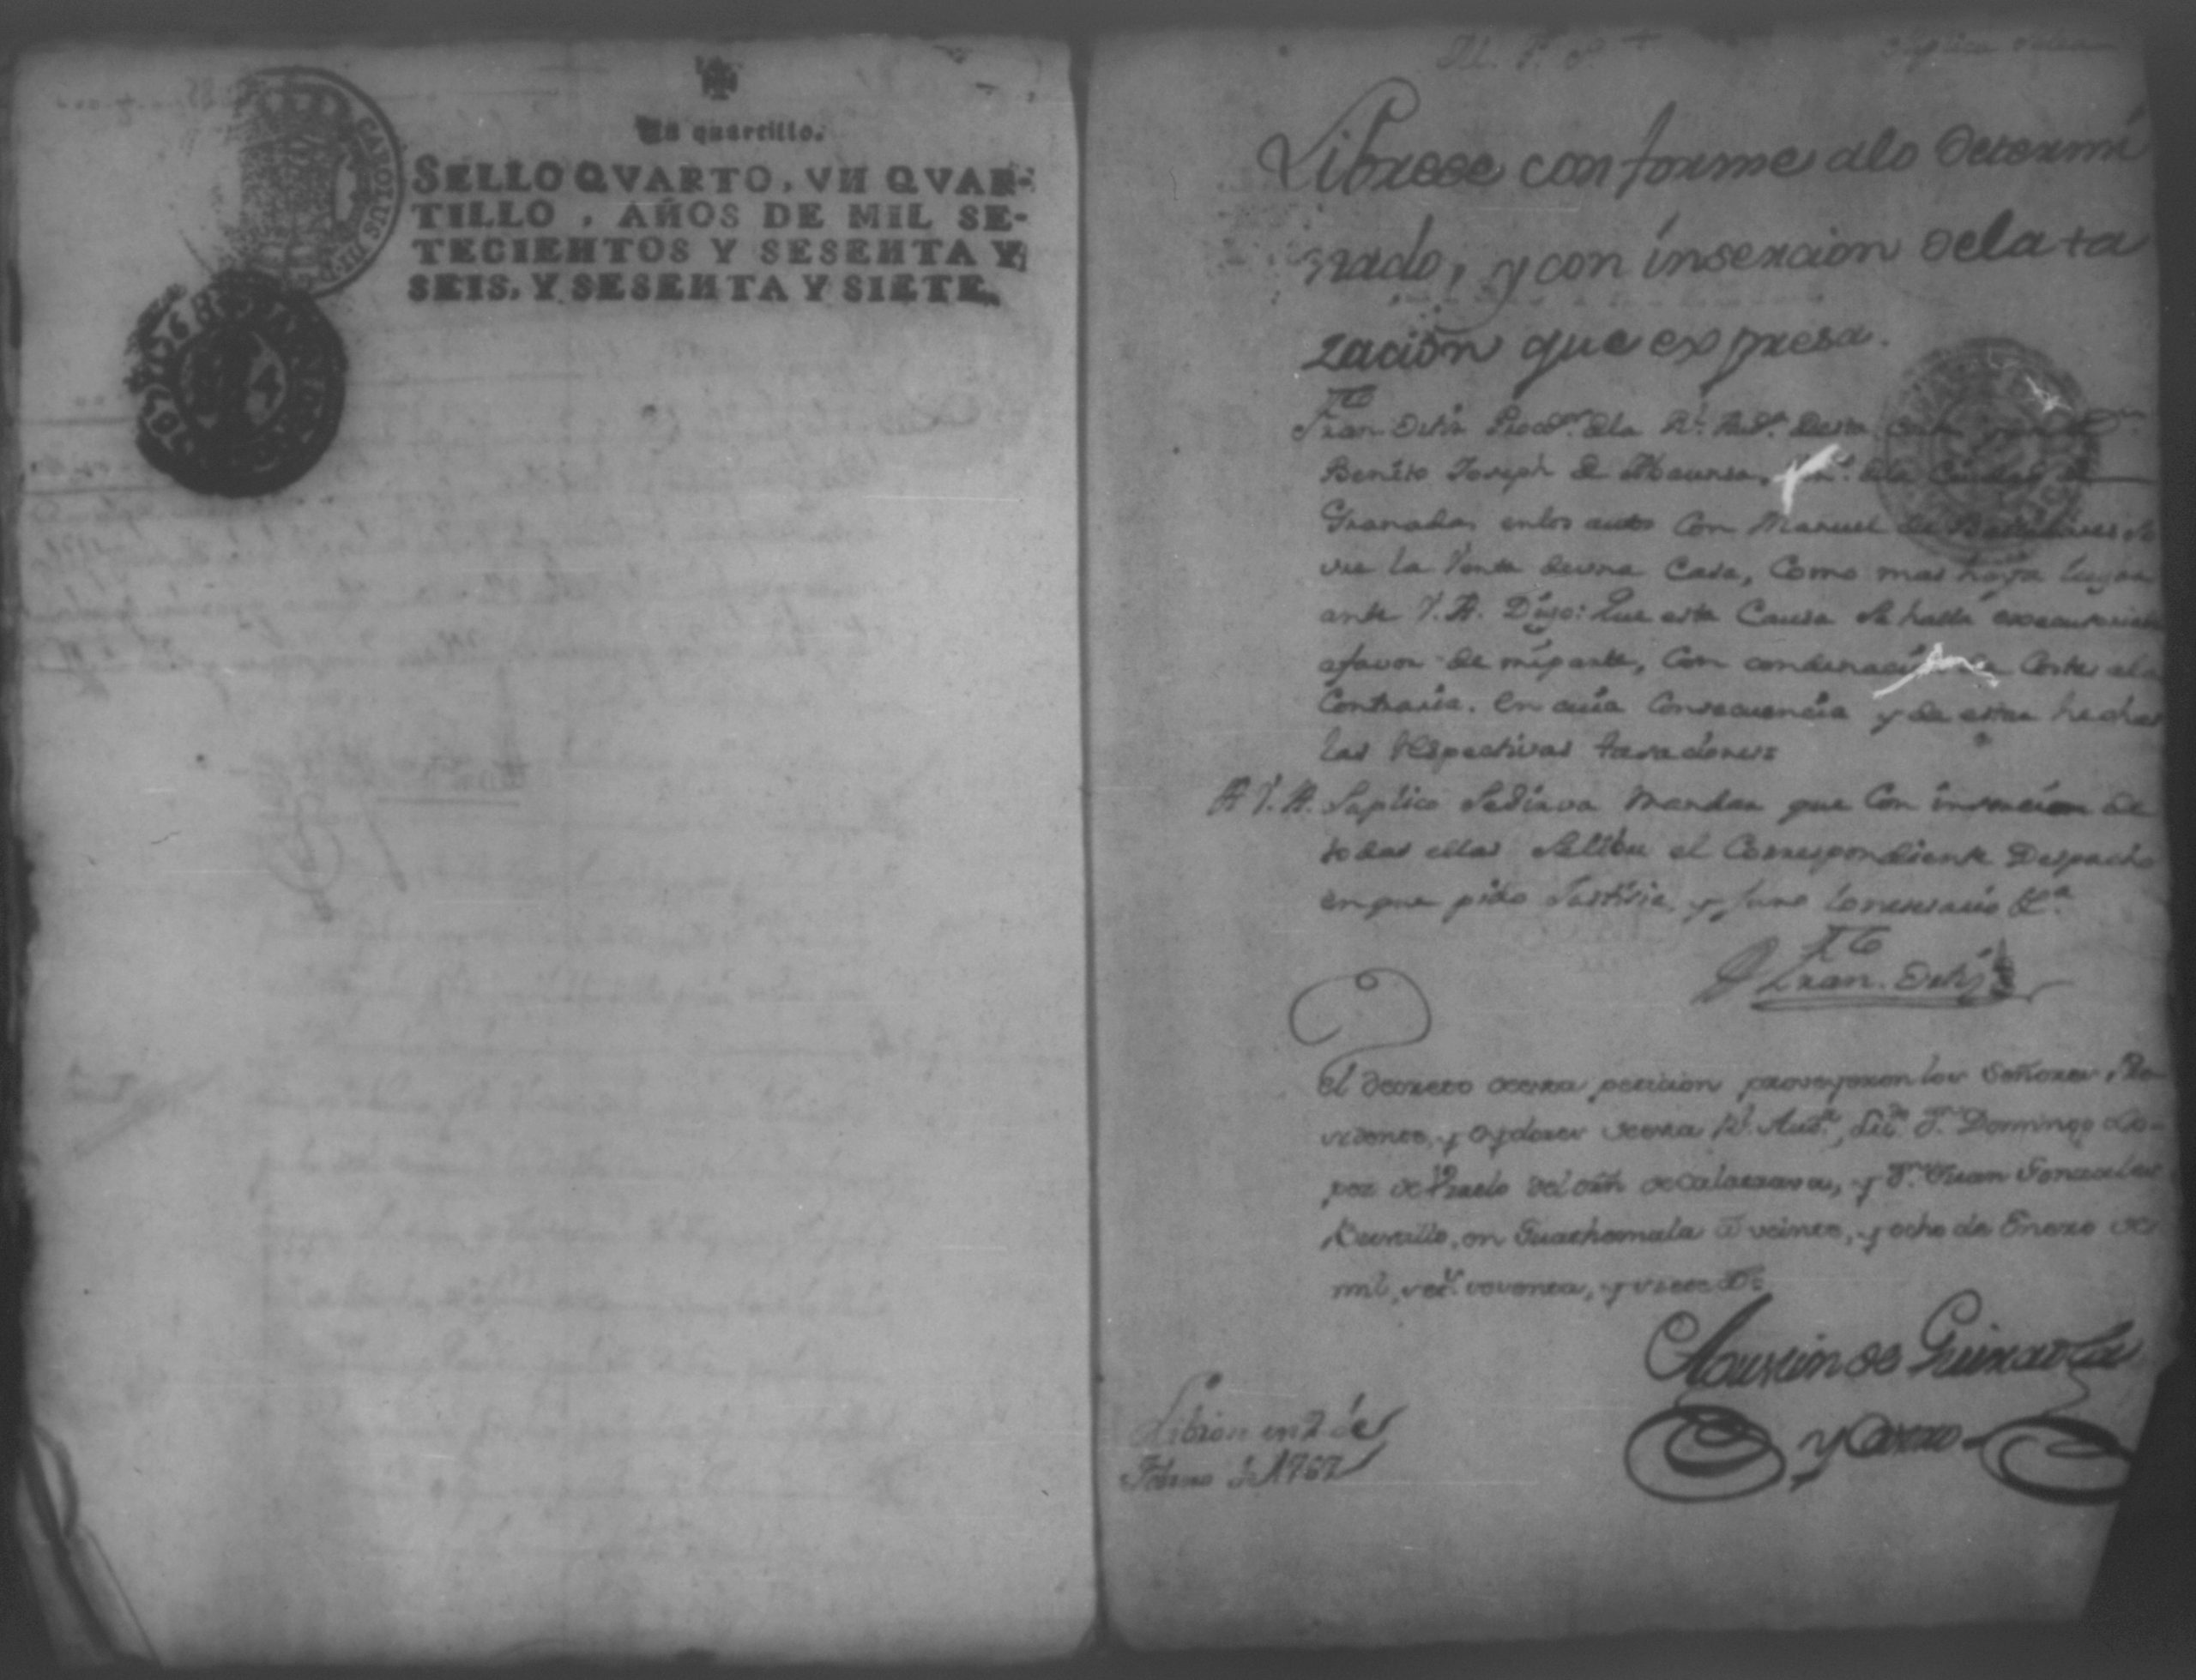 Un quartillo.
SELLO QVARTO, VN QVAR-
TILLO, AÑOS DE MIL SE-
TECIENTOS Y SESENTA Y
SEIS, Y SESENTA Y SIETE.
CAROLUS III
M. P. S.
Librese conforme alo determi
nado, y con insercion dela ta
zacion que expresa.
Fran Deliz Procor. dela Rl. Auda. desta
Benito Joseph de dela Ciudad de
Granada, enlos autos Con Manuel de
vre la Venta deuna Casa, Como mas haya lugar
ante V. A. Digo: Que esta Causa se halla
afavor de miparte, Con condenación Costas ala
Contraria. En cuia Consecuencia y de estar hechas
las respectivas tasaciones
A V. A. Suplico Sesirva Mandar que Con insercion de
todas ellas Selibre el Correspondiente Despacho
enque pido Justicia, y Juro lonecesario &a.
Fran. Deliz
El decreto deesta peticion proveyeron los Señores, Pre-
vidente, y oydores deesta Rl. Auda. Licdo. Dn. Domingo Lo-
pez de Vrrelo del orn. deCalatrava, y Dn. Juan Gonzalez
Bustillo, en Guathemala á veinte, y ocho de Enero de
mil, setz. sesenta, y siete as.
Agustin de Guiraola
y Castro
Libròse en 2 de
Febrero de 1767